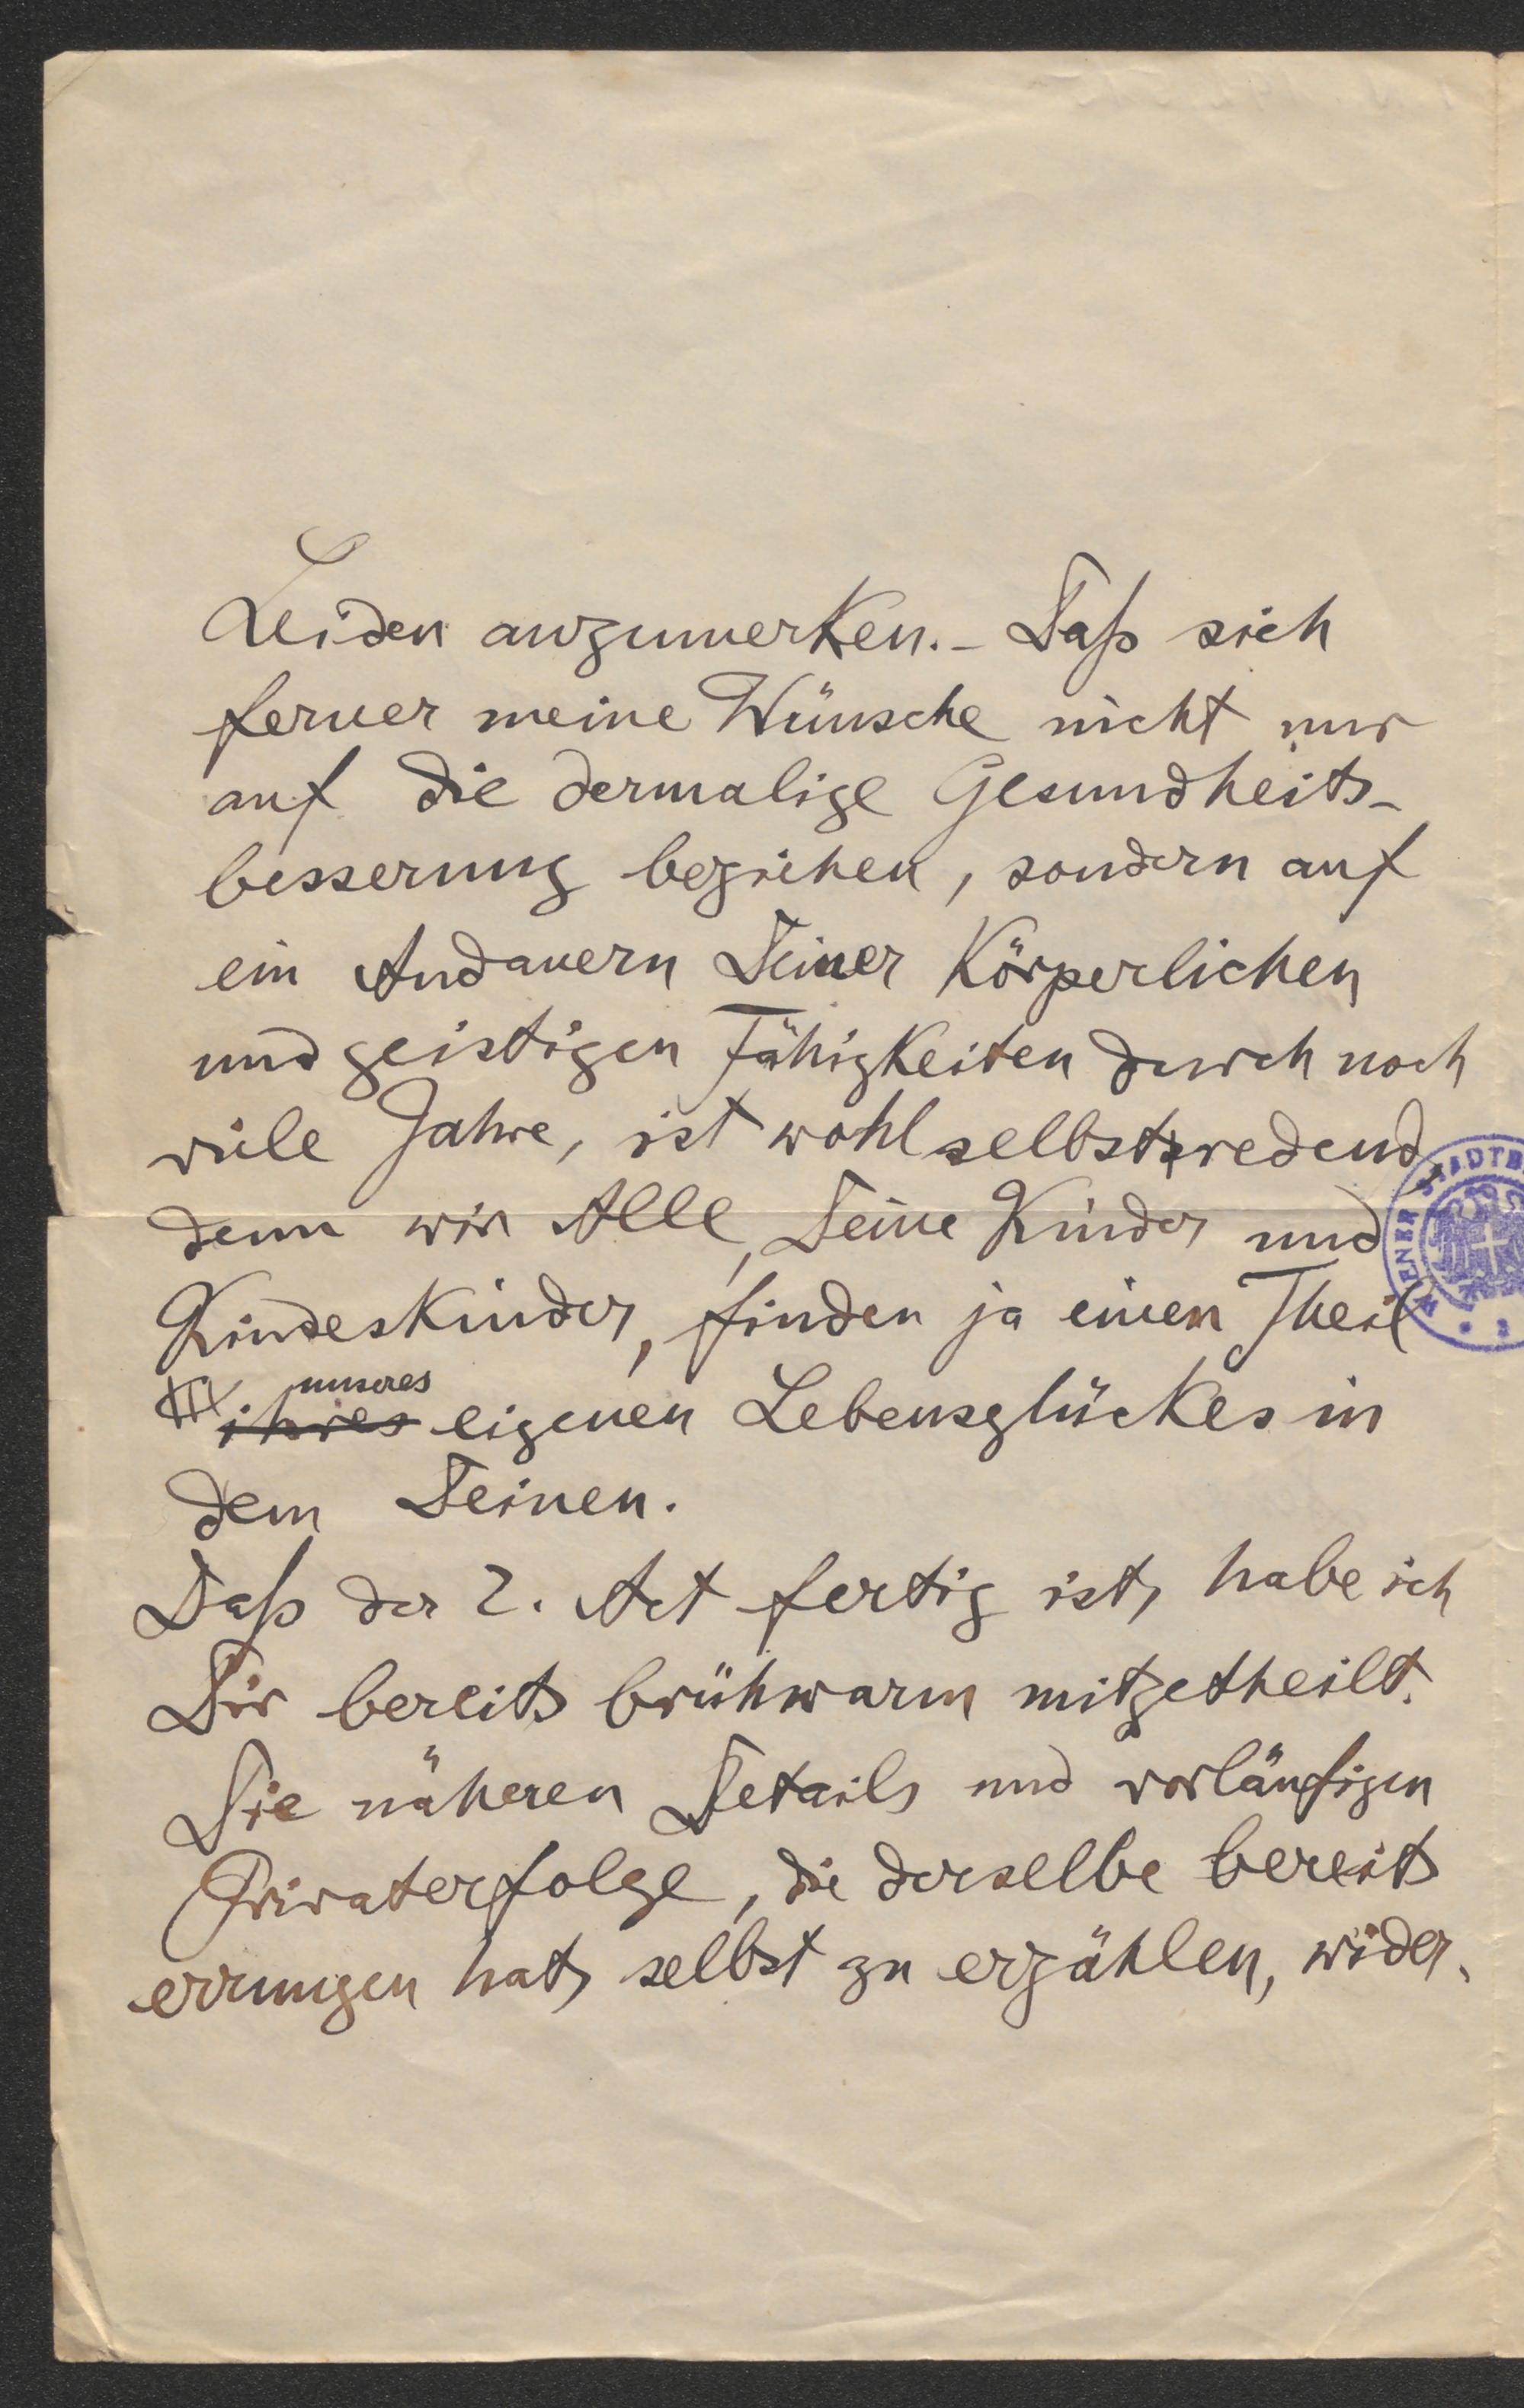 Leiden anzumerken. – Daß sich
ferner meine Wünsche nicht nur
auf die dermalige Gesundheits-
besserung beziehen, sondern auf
ein Andauern Deiner Körperlichen
und geistigen Fähigkeiten durch noch
viele Jahre, ist wohl selbstredend,
denn wir Alle, Deine Kinder und
Kindeskinder, finden ja einen Theil
unseres
ihres eigenen Lebensglückes in
dem Deinen.
Daß der 2. Act fertig ist, habe ich
Dir bereits brühwarm mitgetheilt.
Die näheren Details und vorläufigen
Privaterfolge, die derselbe bereits
errungen hat, selbst zu erzählen, wider-
WIENER STADTB